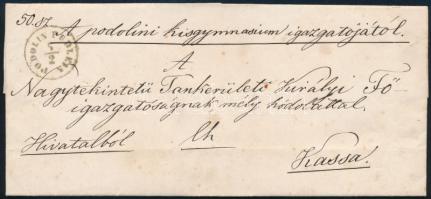 50. sz. A podolini kisgymnasium igazgatójától.
PODOLIN PODLEIN
1/2
A
Nagytekintetű Tankerületi Királyi Fő-
igazgatóságnak mély hódolattal.
Hivatalból
Kassa.